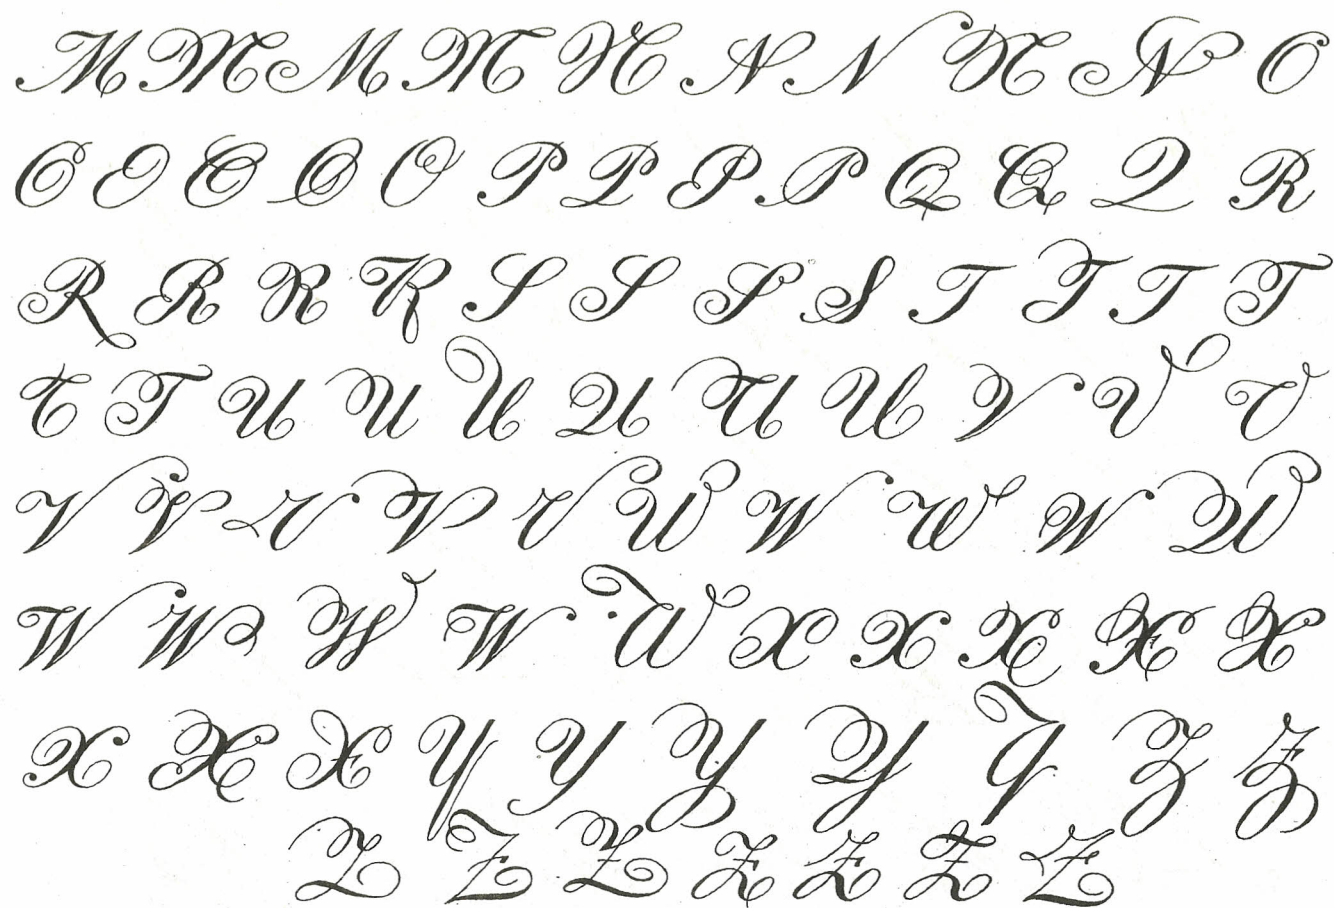 M M M M N N N N N O
O O O O O P P P P Q Q Q R
R R R R S S S S T T T T
T T U U U U U U V V V
V V V V V W W W W W
W W W W W X X X X X
X X X Y Y Y Y Y Z Z
Z Z Z Z Z Z Z